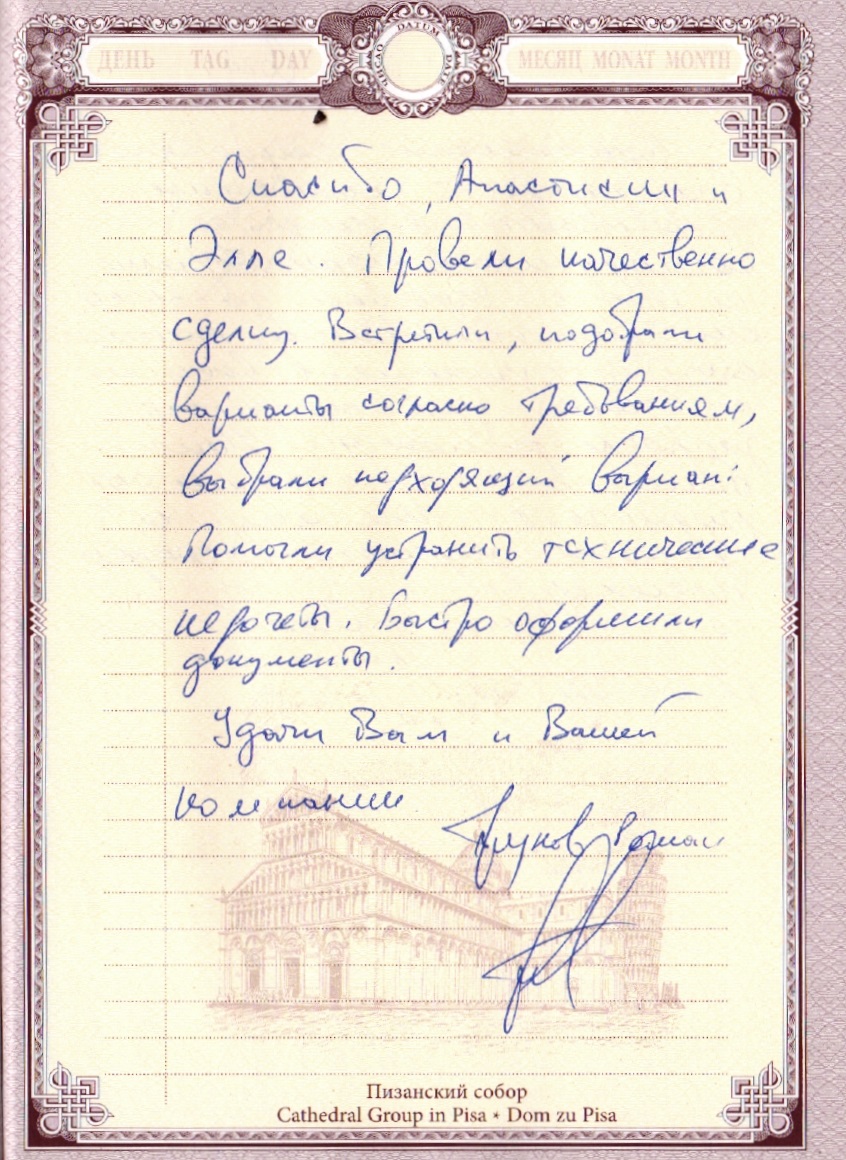 ДЕНЬ TAG DAY
ЧИСЛО DATUM DATE
МЕСЯЦ MONAT MONTH
Спасибо, Анастасии и
Элле. Провели качественно
сделку. Встретили, подобрали
варианты согласно требованиям,
выбрали подходящий вариан
Помогли устранить технические
недочеты. Быстро оформили
документы.
Удачи Вам и Вашей
компании
Роман
Пизанский собор
Cathedral Group in Pisa * Dom zu Pisa